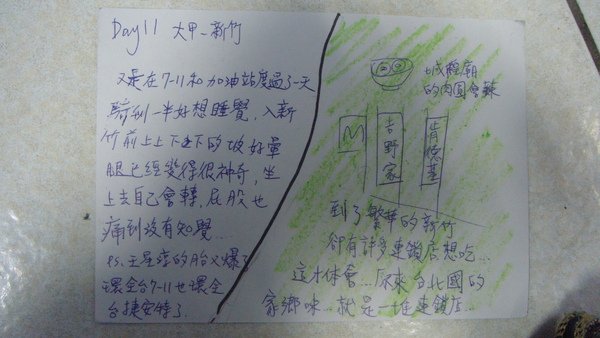 Day11 大甲-新竹
又是在7-11和加油站度過了一天
騎到一半好想睡覺,入新
竹前上上下下的坡好暈
腿已經變得很神奇,坐
上去自己會轉,屁股也
痛到沒有知覺...
ps.王星淳的胎又爆了
環全台7-11也環全
台捷安特了.
城隍廟
的肉圓會辣
M
吉野家
肯德基
到了繁華的新竹
卻有許多連鎖店想吃...
這才体會...原來台北國的
家鄉味...就是一堆連鎖店...